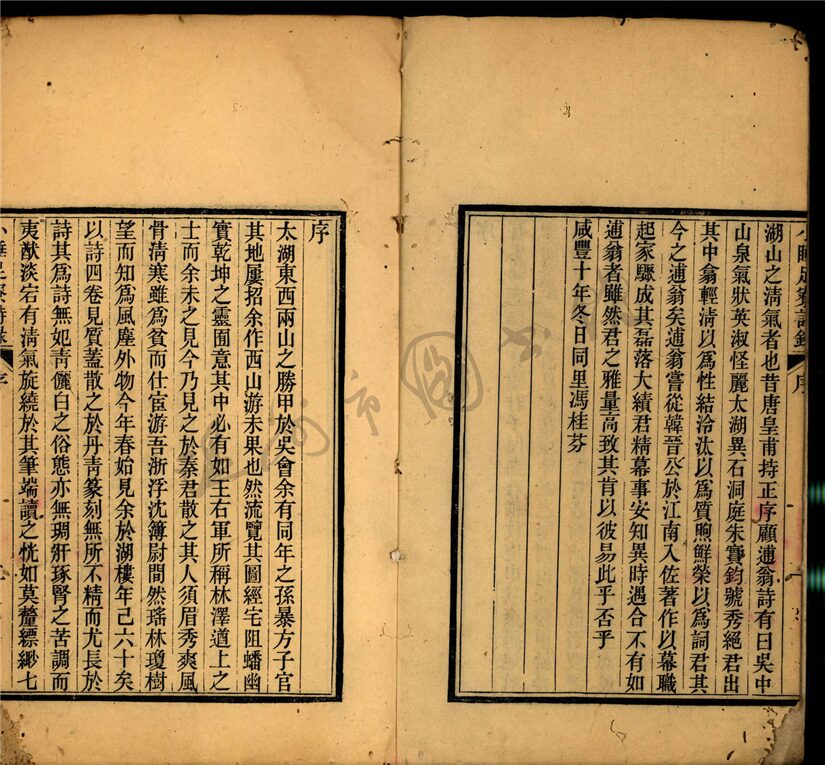 湖山之淸氣者也昔唐皇甫持正序顧逋翁詩有曰吳中
山泉氣狀英淑怪麗太湖異石洞庭朱實鈞號秀絕君出
其中翁輕淸以爲性結泠汰以爲質煦鮮榮以爲詞君其
今之逋翁矣逋翁嘗從韓晉公於江南入佐著作以幕職
起家驟成其磊落大績君精幕事安知異時遇合不有如
逋翁者雖然君之雅量高致其肯以彼易此乎否乎
咸豐十年冬日同里馮桂芬
序
序
太湖東西兩山之勝甲於吳會余有同年之孫暴方子官
其地屢招余作西山游未果也然流覽其圖經宅阻蟠幽
實乾坤之靈囿意其中必有如王右軍所稱林澤道上之
士而余未之見今乃見之於秦君散之其人須眉秀爽風
骨淸寒雖爲貧而仕宦游吾浙浮沈簿尉間然瑤林瓊樹
望而知爲風塵外物今年春始見余於湖樓年已六十矣
以詩四卷見質蓋散之於丹靑篆刻無所不精而尤長於
詩其爲詩無妃靑儷白之俗態亦無琱肝琢腎之苦調而
夷猷淡宕有淸氣旋繞於其筆端讀之恍如莫釐縹緲七
序